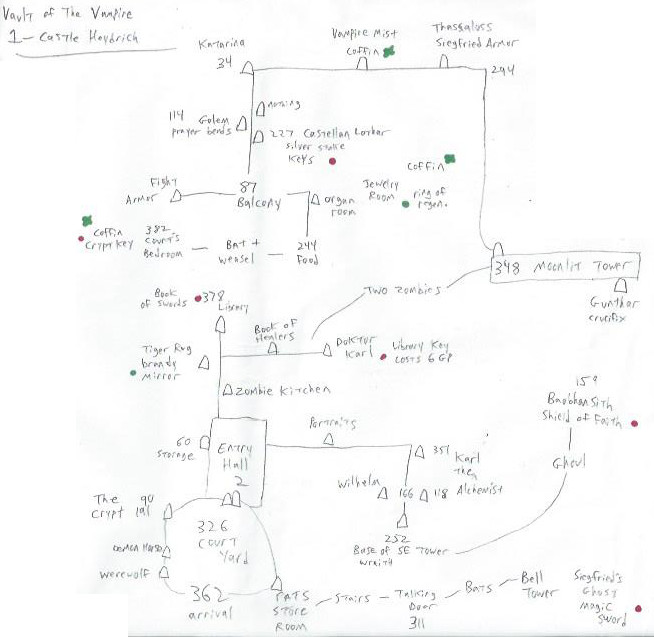 Vault of The Vampire
1 - Castle Heydrich
Katarina
34
Vampire Mist
coffin
Thassaloss
Siegfried Armor
294
nothing
114 Golem
prayer beads
227 Castellan Lothar
silver stake
Keys
Fight
Armor
87
Balcony
organ
room
coffin
Jewelry
Room
ring of
regen.
coffin
Crypt Key
382
count's
Bedroom
Bat +
weasel
244
Food
348 Moonlit Tower
Gunthar
crucifix
Two Zombies
Book
of swords
378
Library
Book of
Healers
Doktor
Karl
Library Key
costs 6 GP
Tiger Rug
brandy
mirror
Zombie Kitchen
159
Baobhan Sith
Shield of Faith
Ghoul
60
Storage
Entry
Hall
2
Portraits
351
Karl
The
Alchemist
Wilhelm
166
118
252
Base of SE Tower
wraith
The
Crypt
90
191
326
Court
Yard
Demon Horse
werewolf
362
arrival
Rats
Store
Room
Stairs
Talking
Door
311
Bats
Bell
Tower
Siegfried's
Ghost
magic
sword